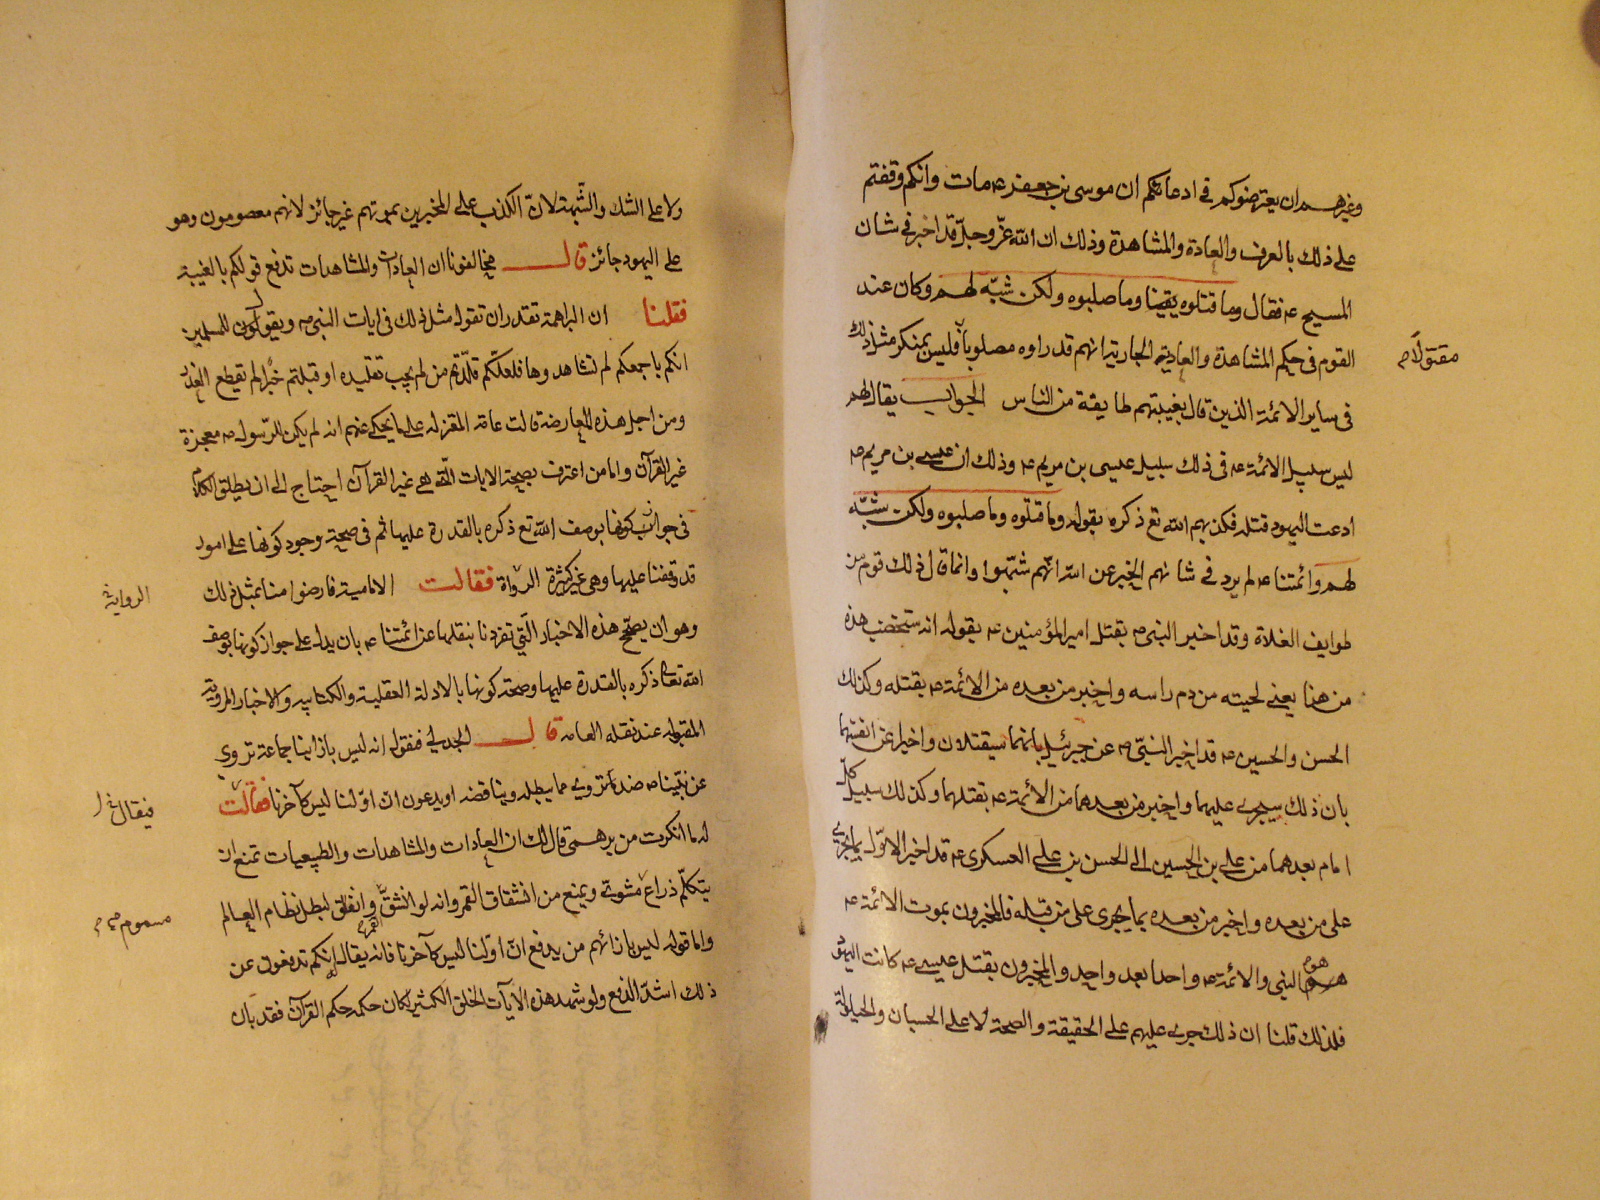 وغيرهم ان يعترضوكم في ادعائكم ان موسى بن جعفر ع مات وانكم وقفتم
على ذلك بالعرف والعادة والمشاهدة وذلك ان الله عز وجل قد اخبر في شان
المسيح ع فقال وما قتلوه يقينا وما صلبوه ولكن شبّه لهم وكان عند
القوم في حكم المشاهدة والعادة الجارية انهم قد راوه مصلوباً فليس بمنكر مثل ذلك
مقتولا م
في ساير الائمة الذين قال بغيبتهم طايفة من الناس الجواب يقال لهم
ليس سبيل الائمة ع في ذلك سبيل عيسى بن مريم ع وذلك ان عيسى بن مريم ع
ادعت اليهود قتله فكذبهم الله تع ذكره بقوله وما قتلوه وما صلبوه ولكن شبّه
لهم وائمتنا ع لم يرد في شانهم الخبر عن الله انهم شبّهوا وانما قال ذلك قوم من
طوايف الغلاة وقد اخبر النبي ص بقتل امير المؤمنين ع بقوله انه ستخضب هذه
من هذا يعني لحيته من دم راسه واخبر من بعده من الائمة ع بقتله وكذلك
الحسن والحسين ع قد اخبر النبيّ ص عن جبرئيل بانهما سيقتلان واخبرا عن انفسهما
بان ذلك سيجرى عليهما واخبر من بعدهما من الائمة ع بقتلهما وكذلك سبيل كلّ
امام بعدهما من علي بن الحسين الى الحسن بن علي العسكرى ع قد اخبر الاوّل بما يجرى
على من بعده واخبر من بعده بما جرى على من قبله فالمخبرون بموت الائمة ع
هم النبي والائمة ع واحدا بعد واحد والمخبرون بقتل عيسى ع كانت اليهود
فلذلك قلنا ان ذلك جرى عليهم على الحقيقة والصحة لا على الحسبان والحيلولة
ولا على الشك والشّبهة لانّ الكذب على المخبرين بموتهم غير جائز لانهم معصومون وهو
على اليهود جائز قال مخالفونا ان العادات والمشاهدات تدفع قولكم بالغيبة
فقلنا ان البراهمة تقدر ان تقول مثل ذلك في ايات النبي ص ويقولون للمسلمين
انكم باجمعكم لم تشاهدوها فلعلكم قلّدتم من لم يجب تقليده او قبلتم خبرا لم يقطع العذر
ومن اجل هذه المعارضة قالت عامة المعتزله على ما يحكى عنهم انه لم يكن للرّسول ص معجزة
غير القرآن واما من اعترف بصحة الايات الّتي هي غير القرآن احتاج الى ان يطلق الكلام
في جواز كونها بوصف الله تع ذكره بالقدرة عليها ثم في صحة وجود كونها على امور
قد وقفنا عليها وهي غير كثيرة الرواة فقالت الامامية فارضوا منا بمثل ذلك
الرواية
وهو ان يصحّح هذه الاخبار الّتي تفردنا بنقلها عن ائمتنا ع بان يدل على جواز كونها بوصف
الله تعالى ذكره بالقدرة عليها وصحة كونها بالادلة العقلية والكتابيه والاخبار المروية
المقبوله عند نقلة العامه قال الجدلي فنقول انه ليس بازاينا جماعة تروي
عن نبيّنا ص ضد ما نروي مما يبطله ويناقضه او يدعون انّ اوّلنا ليس كآخرنا فقالت
فيقال خ ل
له ما انكرت من برهميّ قال لك ان العادات والمشاهدات والطبيعيات تمنع ان
يتكلّم ذراع مشويّ ويمنع من انشقاق القمر وانه لو انشقّ القمر وانفلق لبطل نظام العالم
مسموم م م
واما قوله ليس بازائهم من يدفع انّ اوّلنا ليس كآخرنا فانه يقال انكم تدفعون عن
ذلك اشدّ الدفع ولو شهد هذه الآيات الخلق الكثير لكان حكمه حكم القرآن فقد بان